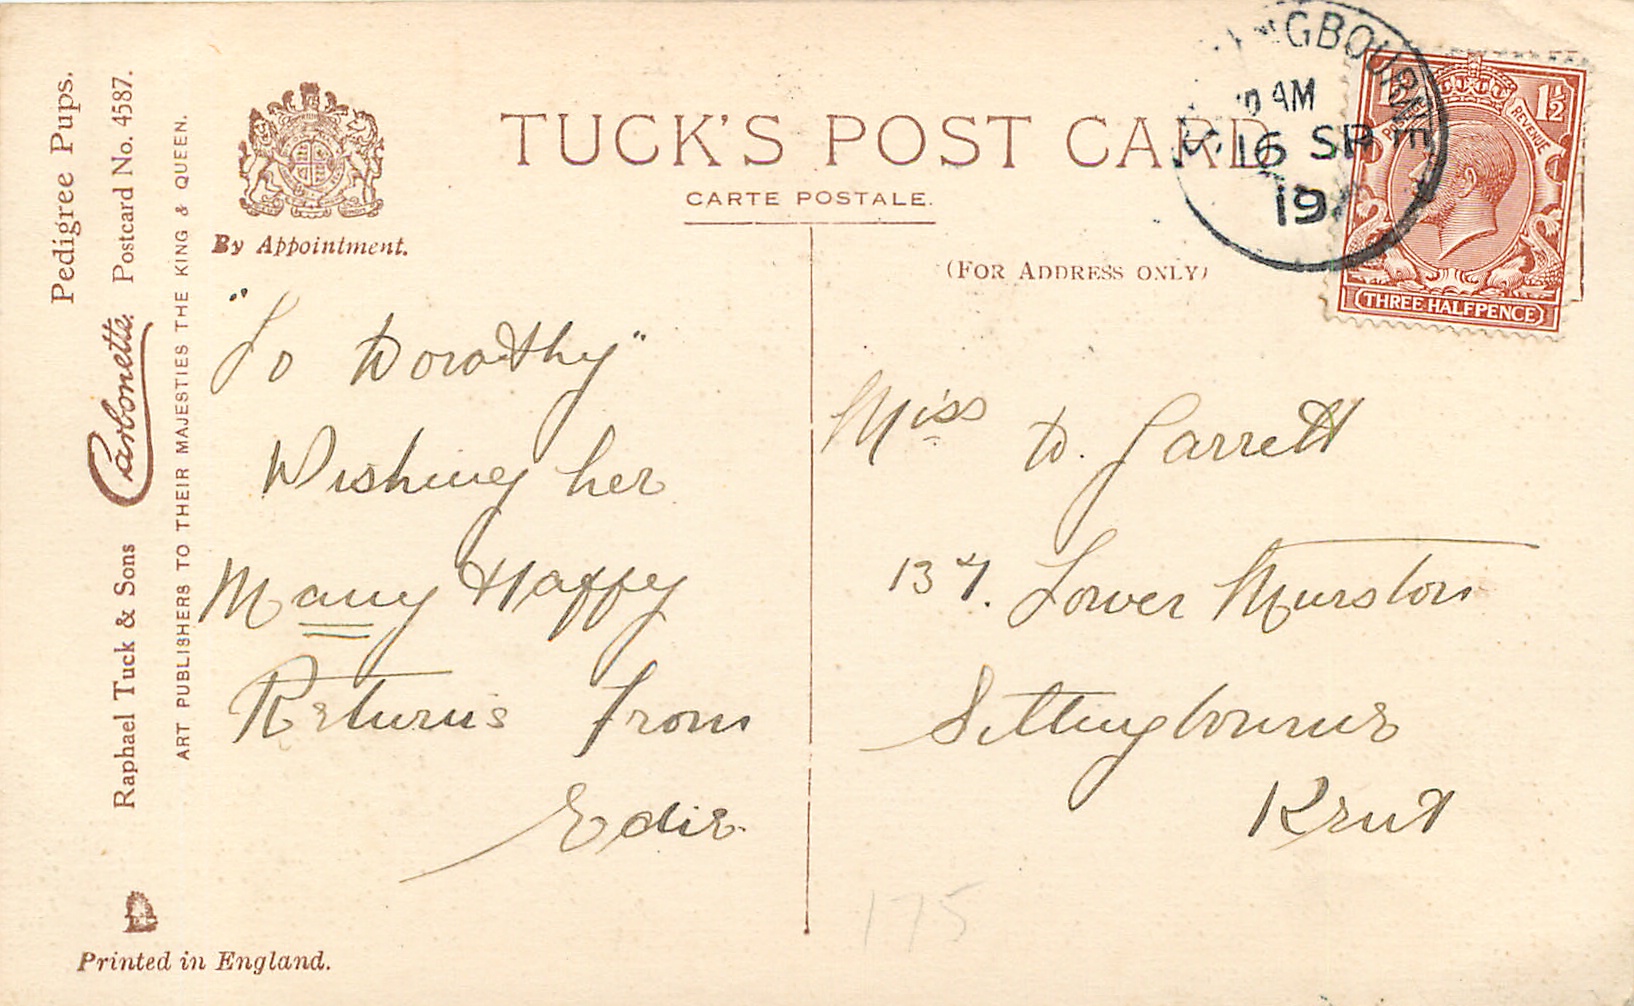 Pedigree Pups.
Raphael Tuck & Sons Carbonette. Postcard No. 4587.
ART PUBLISHERS TO THEIR MAJESTIES THE KING & QUEEN.
By Appointment.
TUCK'S POST CARD
CARTE POSTALE.
(FOR ADDRESS ONLY)
10 AM
16 SP
19
1½ 1½
POSTAGE REVENUE
THREE HALFPENCE
"To Dorothy"
Wishing her
Many Happy
Returns from
Edie.
Miss D. Garrett
137. Lower Murston
Sittingbourne
Kent
175
Printed in England.